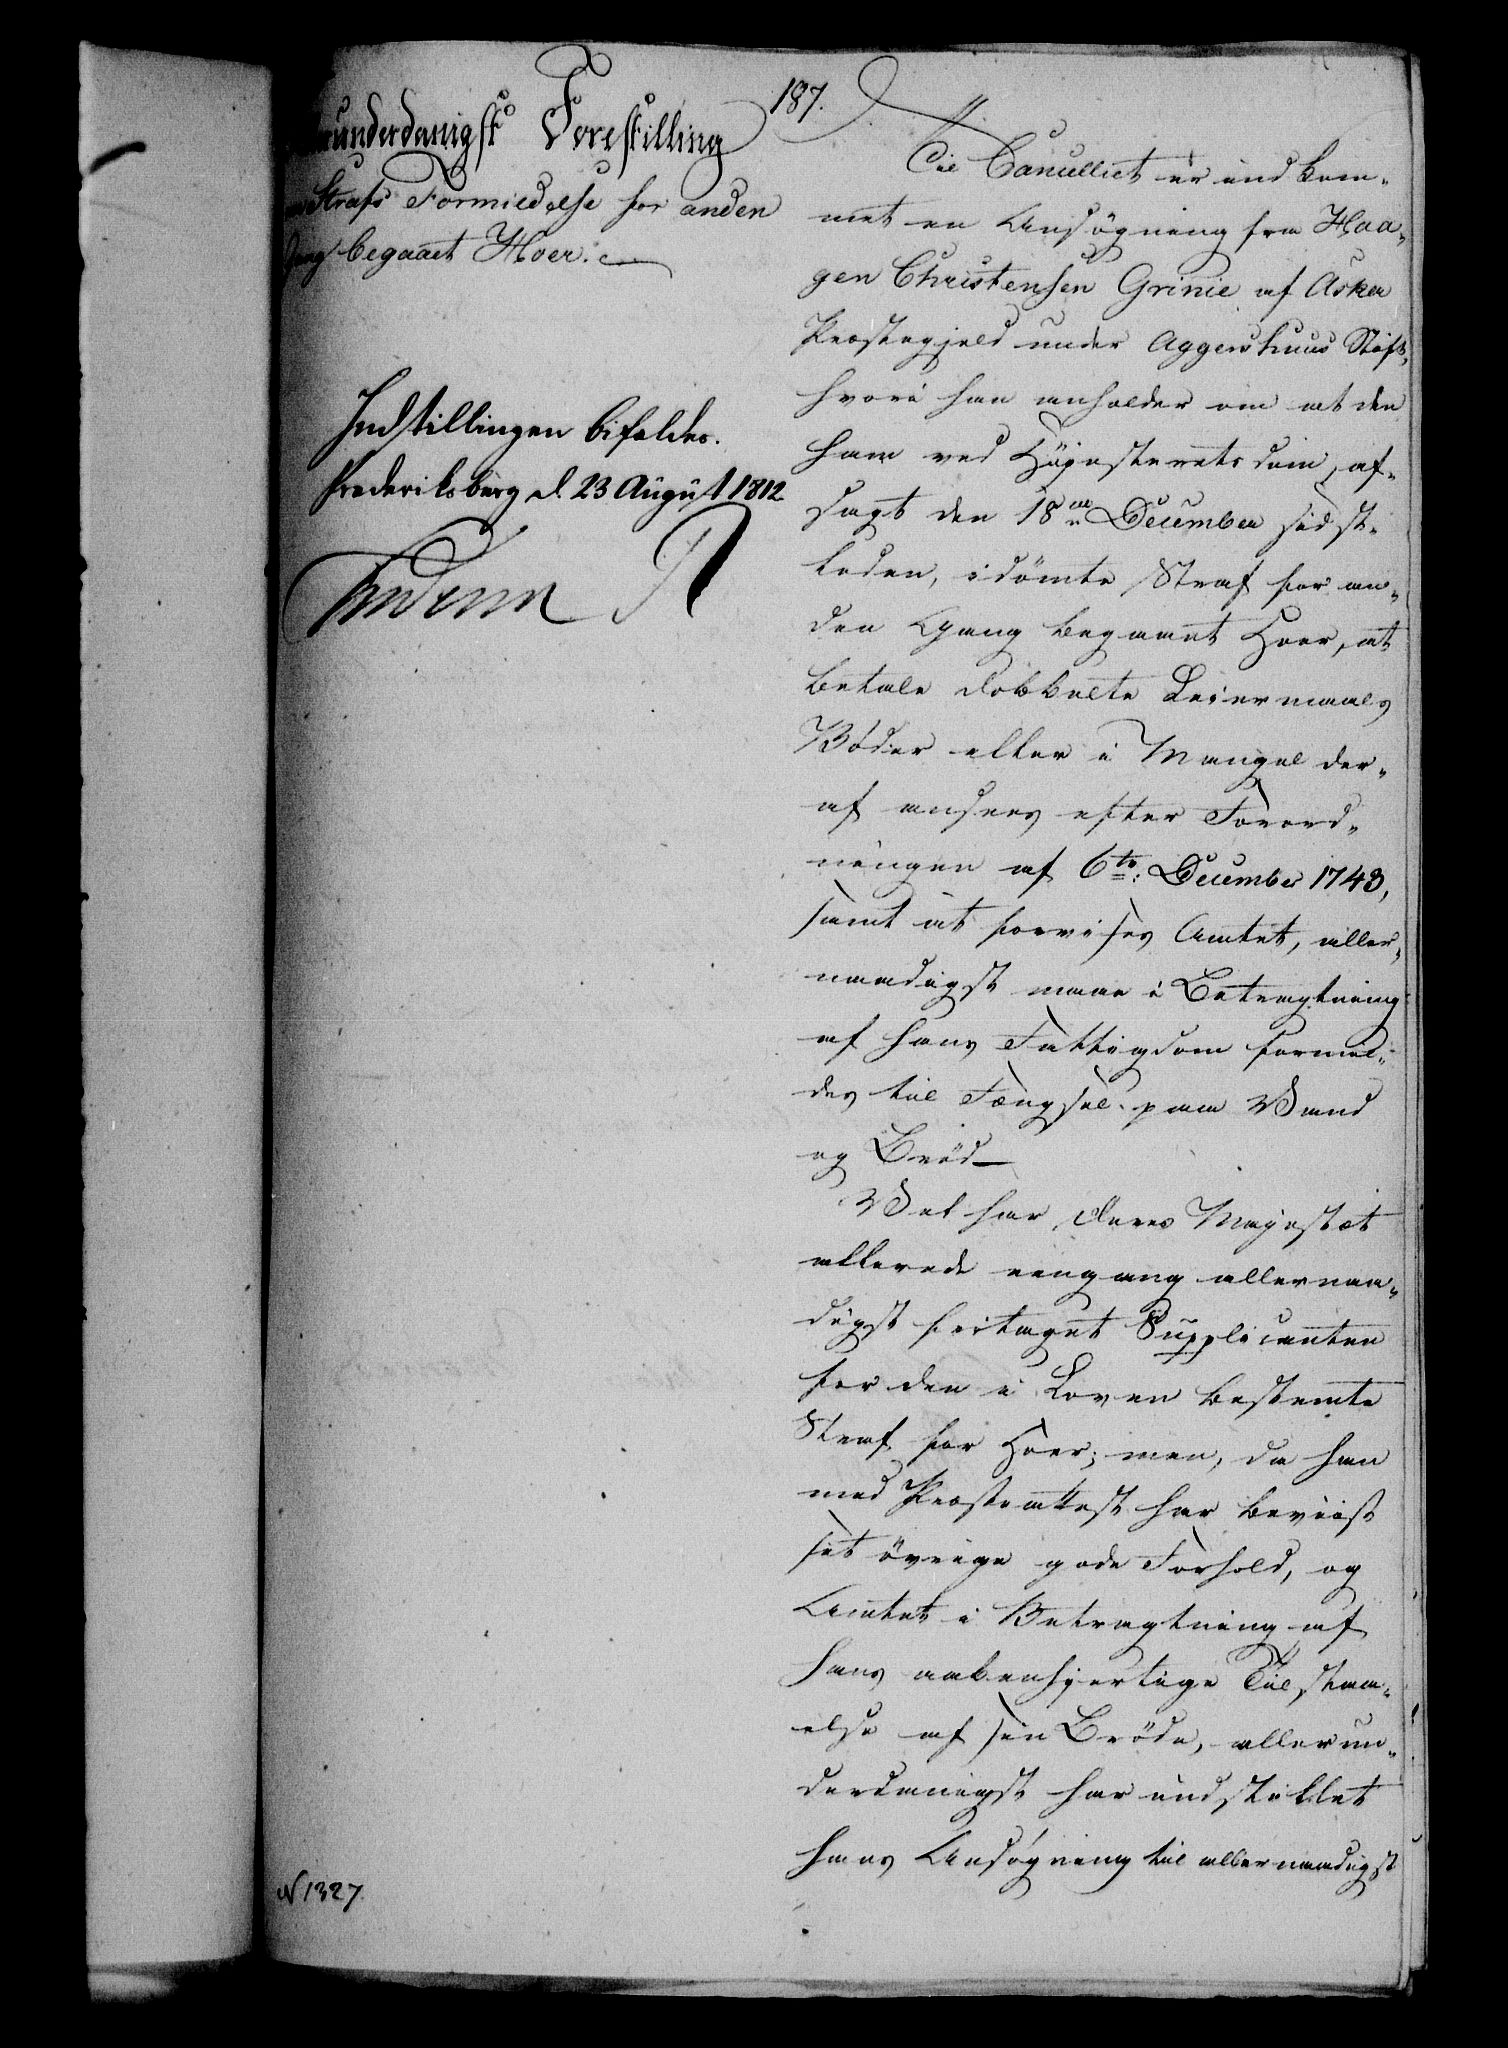 187.
underdanigst Forestilling
Strafs Formildelse for anden
Gang begaaet Hoer.
Indstillingen bifaldes.
Frederiksberg d. 23 August 1812
Frederik R
Til Cancelliet er indkom-
met en Ansøgning fra Haa-
gen Christensen Grinie af Asker
Præstegjeld under Aggershuus Stift,
hvori han anholder om at den
ham ved Höjesteretsdom, af-
sagt den 18de December sidst-
leden, idömte Straf for an-
den Gang begaaet Hoer, at
betale dobbelte Leiermaals
Böder eller i Mangel der-
af ansees efter Forord-
ningen af 6te December 1743,
samt at forvises Amtet, aller-
naadigst maae i Betragtning
af hans Fattigdom formil-
des til Fængsel paa Vand
og Bröd
Vel har Deres Majestæt
allerede eengang allernaa-
digst fritaget Supplicanten
for den i Loven bestemte
Straf for Hoer; men, da han
med Præsteattest har beviist
sit övrige gode Forhold, og
Amtet i Betragtning af
hans aabenhjertige Tilstaa-
else af sin Bröde, allerun-
derdanigst har indstillet
hans Ansögning til allernaadigst
N 1327